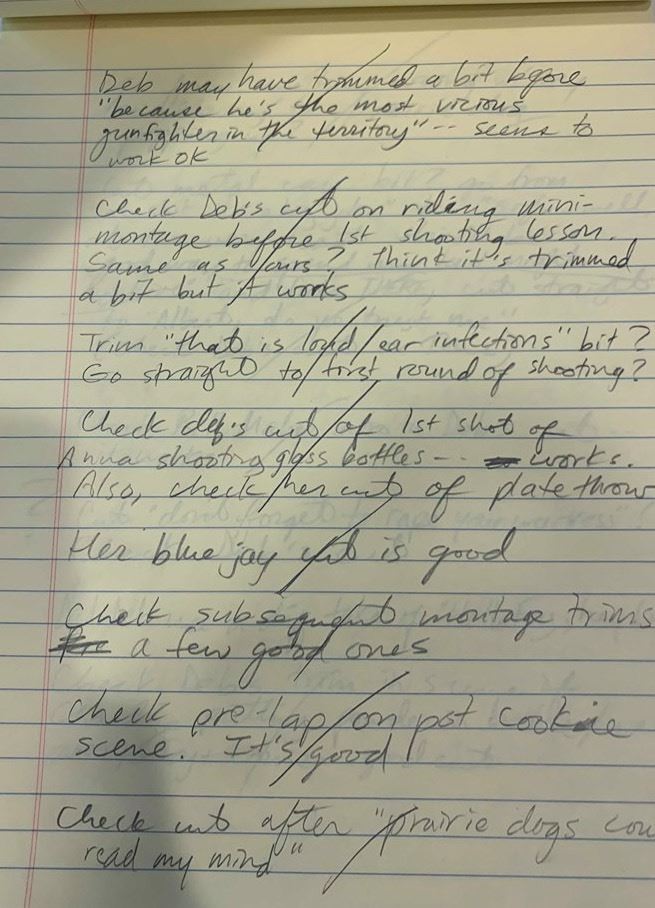 Deb may have trimmed a bit before
"because he's the most vicious
gunfighter in the territory" -- seems to
work OK
Check Deb's cut on riding mini-
montage before 1st shooting lesson.
Same as yours? Think it's trimmed
a bit but it works
Trim "that is loud/ear infections" bit?
Go straight to first round of shooting?
Check deb's cut of 1st shot of
Anna shooting glass bottles -- works.
Also, check her cut of plate throw
Her blue jay cut is good
Check subsequent montage trims
a few good ones
Check pre-lap on pot cookie
scene. It's good
Check cut after "prairie dogs cou
read my mind"